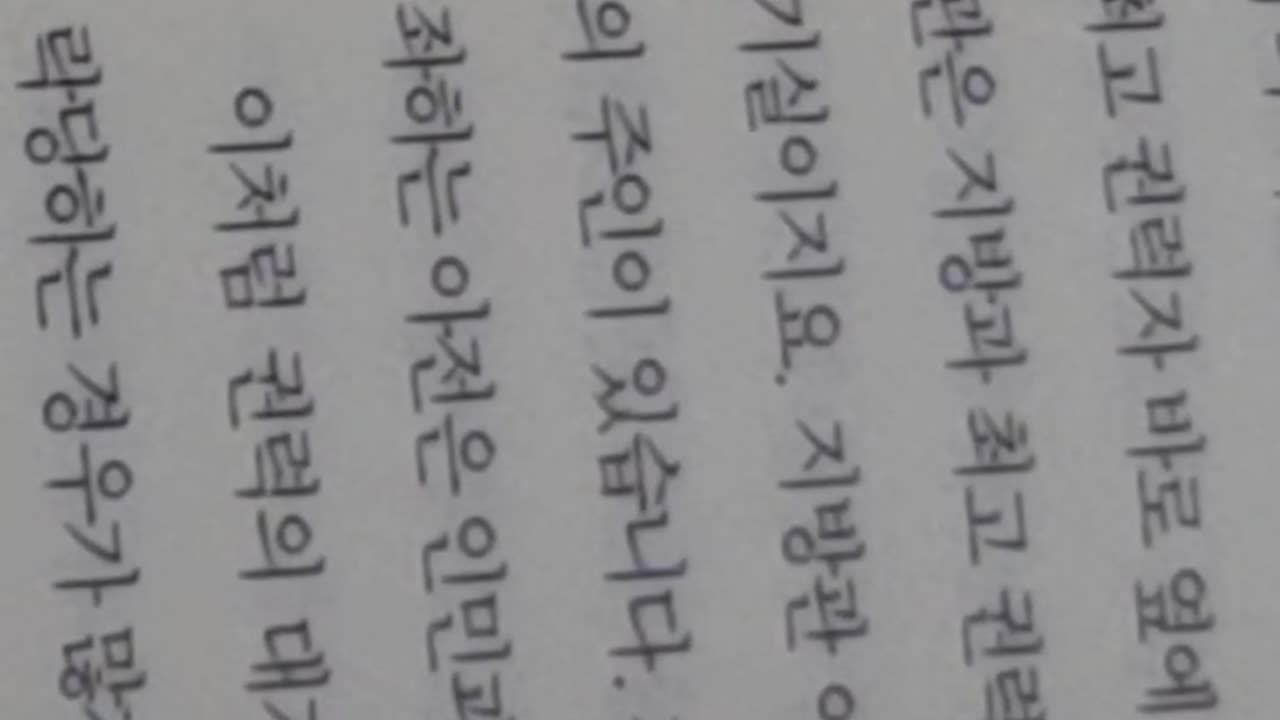 최고 권력자 바로 옆에
관은 지방과 최고 권력
기실이지요. 지방관
의 주인이 있습니다.
좌하는 아전은 인민과
이처럼 권력의 대
락당하는 경우가 많